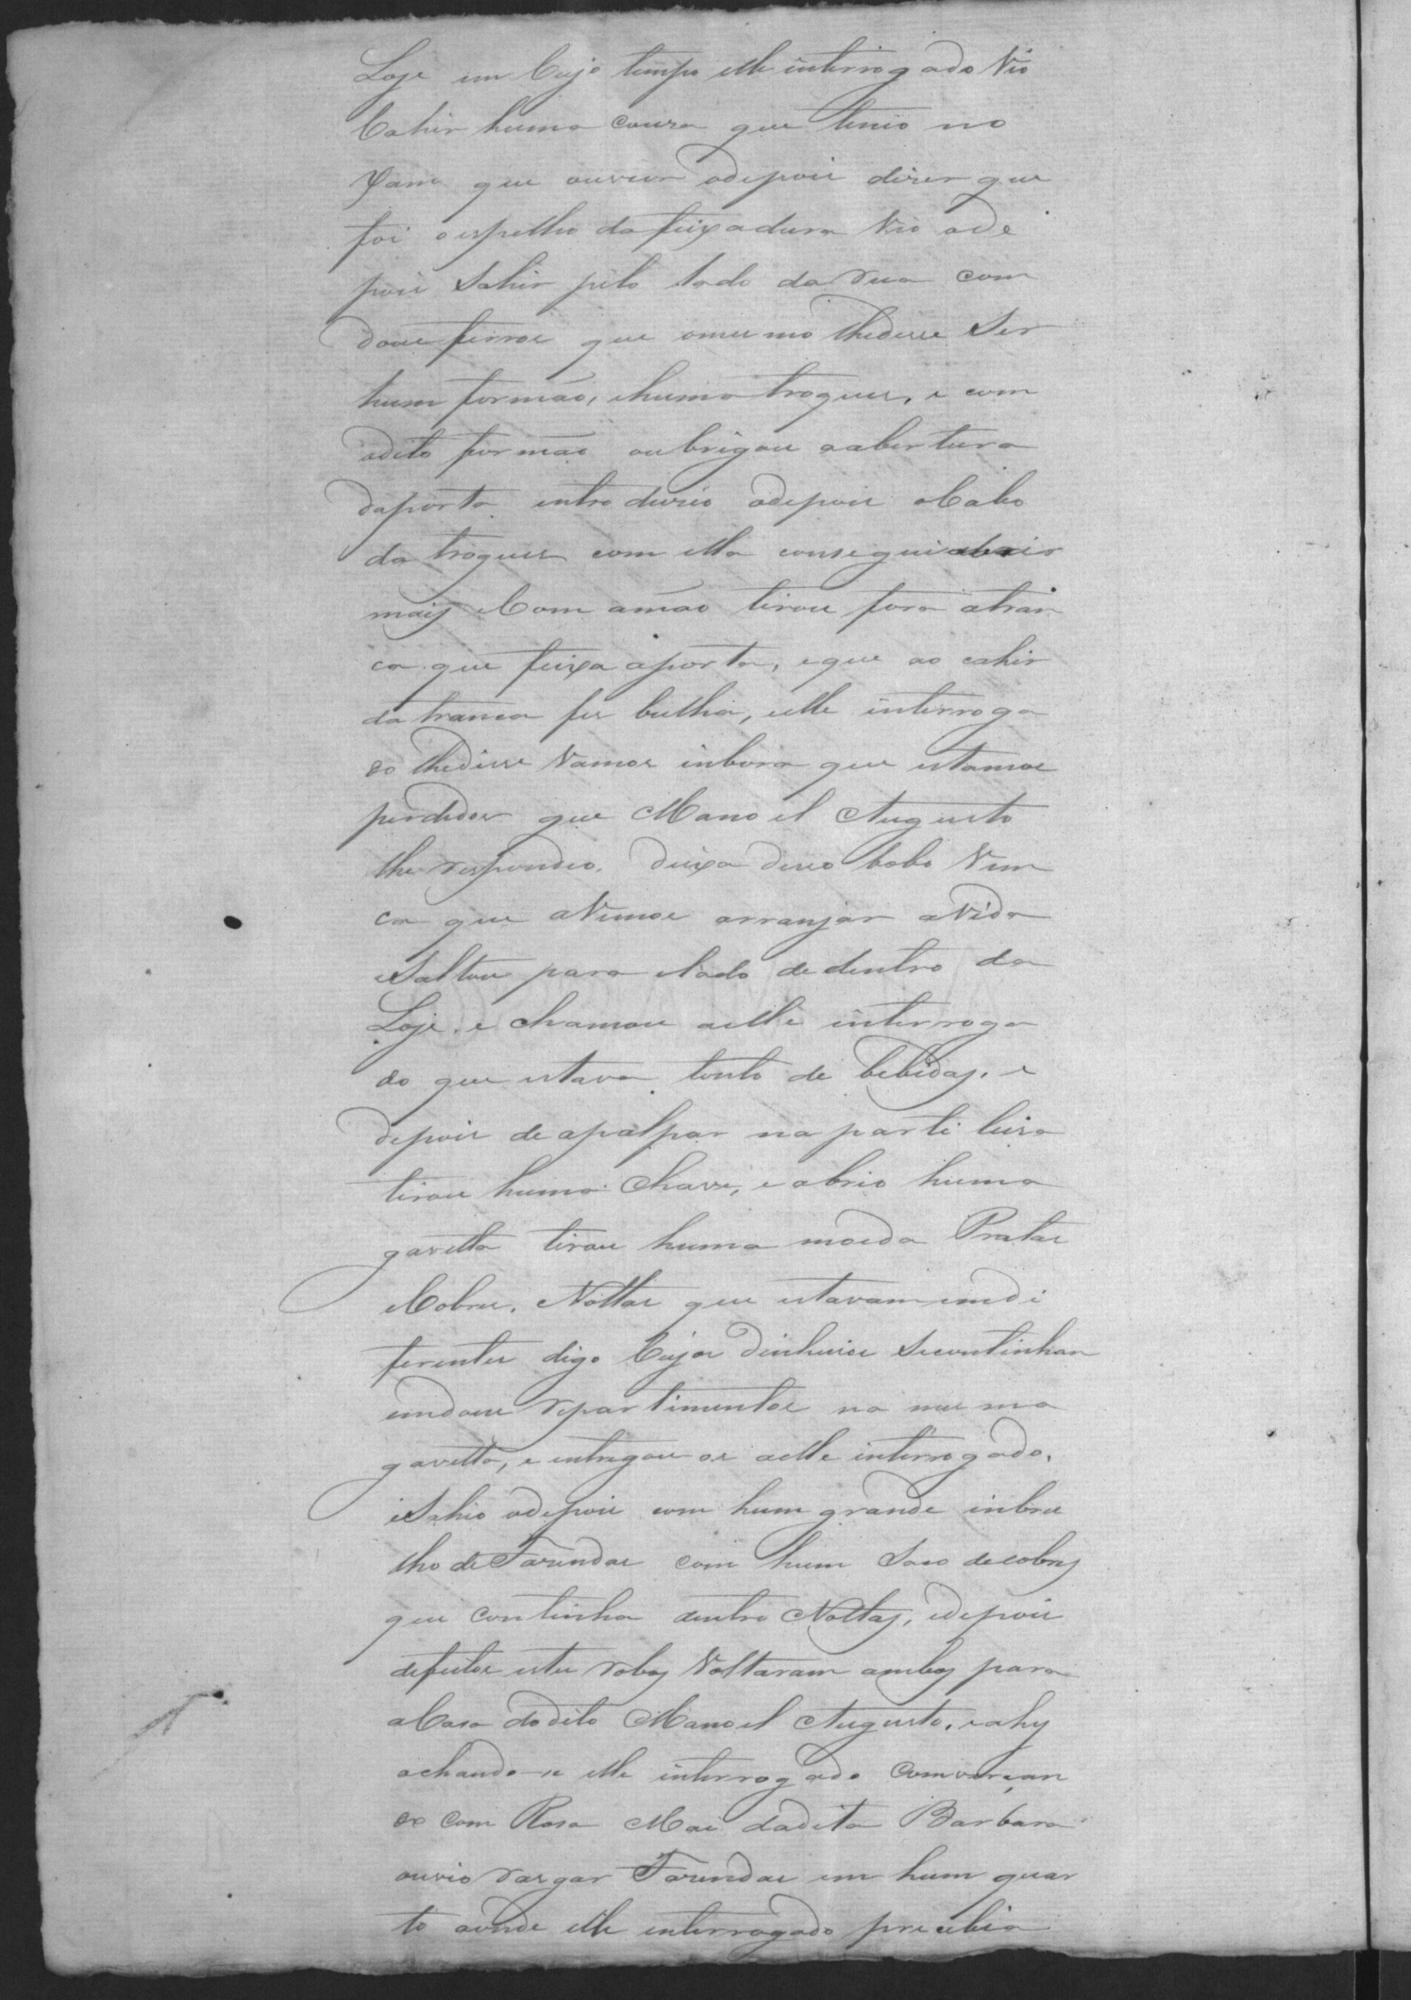 Loje em Cujo tempo elle interrogado Vio
Cahir huma couza que tinio no
xam que ouvira adepois dizer que
foi o espelho da feixadura Vio ade
pois Sahir pelo lado da rua com
dous ferros que omesmo lhedisse Ser
hum formão, ehuma troques, e com
odito formão oubrigou aabertura
daporta introduzio adepois oCabo
da troques com ella consegui abrir
mais eCom amão tirou fora atran
ca que feixa aporta, eque ao cahir
da tranca fes bulha, elle interroga
do lhedisse Vamos inbora que estamos
perdidos que Manoel Augusto
lhe respondeo. deixa disso bobo Vem
ca que aVemos arranjar aVida
eSaltou para olado dedentro da
Loje. e chamou aelle interroga
do que estava tonto de bebidas. e
depois de apalpar na parteleira
tirou huma Chave, e abrio huma
gavetta tirou huma moeda Pratas
eCobres. Nottas que estavam emdi
ferentes digo Cujos dinheiros Secontinhan
emdous repartimentos na mesma
gavetta, e entregou os aelle interrogado.
eSahio adepois com hum grande inbru
lho de Fazendas com hum Saco decobres
que continha dentro Nottas, edepois
defeitos estes robos Voltaram ambos para
aCasa dodito Manoel Augusto. eahy
achando-se elle interrogado Comverçan
do com Rosa Mai dadita Barbara
ouvio rasgar Fazendas em hum quar
to aonde elle interrogado precebia